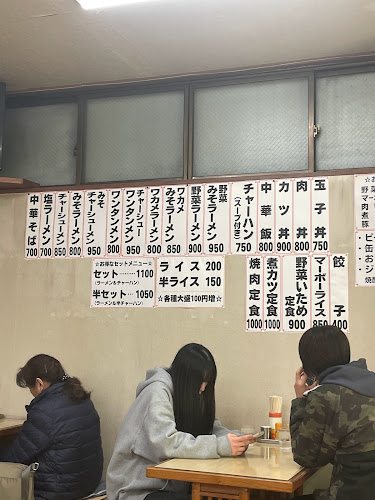 中華そば 700
塩ラーメン 700
チャーシューメン 850
みそラーメン 800
みそチャーシューメン 950
ワンタンメン 800
チャーシューワンタンメン 950
ワカメラーメン 800
ワカメみそラーメン 850
野菜ラーメン 900
野菜みそラーメン 950
チャーハン(スープ付き) 750
中華飯 800
カツ丼 800
肉丼 800
玉子丼 750
☆お得なセットメニュー☆
セット………1100
(ラーメン&チャーハン)
半セット……1050
(ラーメン&半チャーハン)
ライス 200
半ライス 150
☆各種大盛100円増☆
焼肉定食 1000
煮カツ定食 1000
野菜いため定食 900
マーボーライス 850
餃子 400